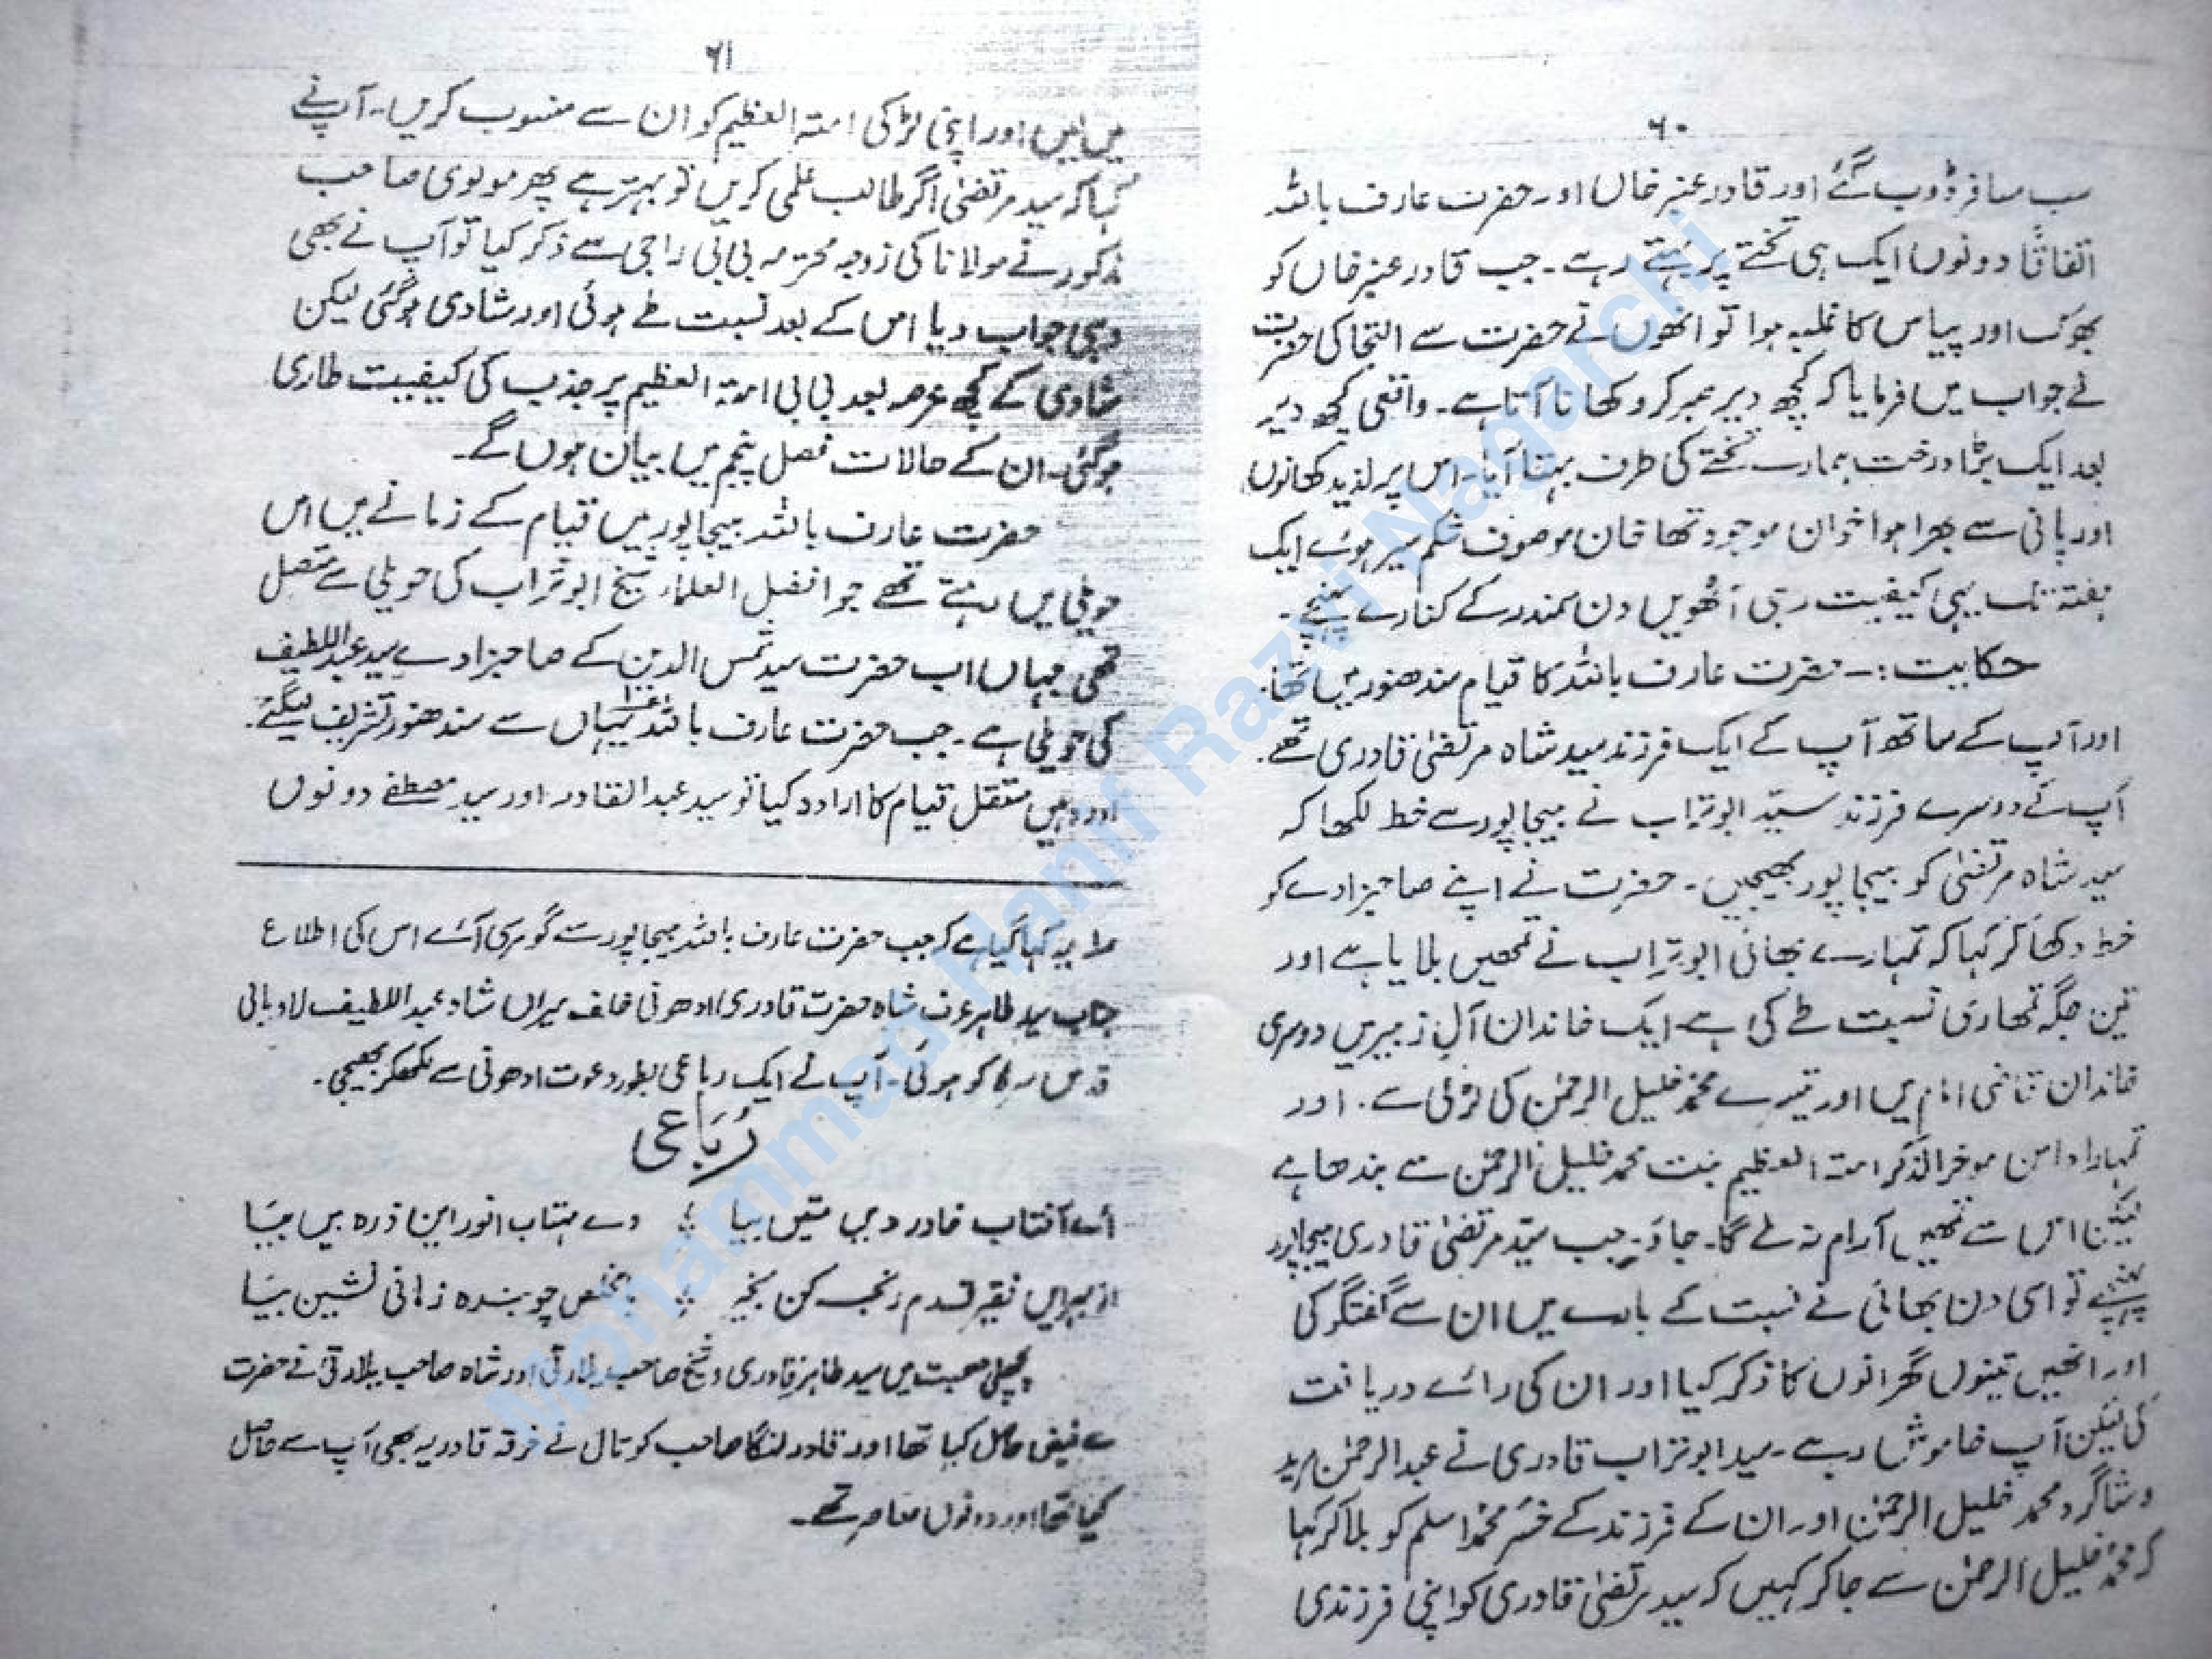 ۶۰
سب مسافر ڈوب گئے اور قادر عنبر خاں اور حضرت عارف باللہ
اتفاقاً دونوں ایک ہی تختے پر بہتے رہے۔ جب قادر عنبر خاں کو
بھوک اور پیاس کا غلبہ ہوا تو انھوں نے حضرت سے التجا کی حضرت
نے جواب میں فرمایا کہ کچھ دیر صبر کرو کھانا آتا ہے۔ واقعی کچھ دیر
بعد ایک بڑا درخت ہمارے تختے کی طرف بہتا آیا۔ اس پر لذیذ کھانوں
اور پانی سے بھرا ہوا خوان موجود تھا خان موصوف شکم سیر ہوئے ایک
ہفتہ تک یہی کیفیت رہی آٹھویں دن سمندر کے کنارے پہنچے۔
حکایت:۔ حضرت عارف باللہ کا قیام سندھنور میں تھا۔
اور آپ کے ساتھ آپ کے ایک فرزند سید شاہ مرتضیٰ قادری تھے۔
آپ کے دوسرے فرزند سیّد ابو تراب نے بیجاپور سے خط لکھا کہ
سید شاہ مرتضیٰ کو بیجاپور بھیجیں۔ حضرت نے اپنے صاحبزادے کو
خط دکھا کر کہا کہ تمہارے بھائی ابو تراب نے تمھیں بلایا ہے اور
تین جگہ تمھاری نسبت طے کی ہے۔ ایک خاندان آلِ زبیر میں دوسری
خاندان قاضی امام میں اور تیسرے محمد خلیل الرحمٰن کی لڑکی سے۔ اور
تمہارا دامن موخر الذکر امتہ العظیم بنت محمد خلیل الرحمٰن سے بندھا ہے
لیکن اس سے تمھیں آرام نہ ملے گا۔ جاؤ۔ جب سیّد مرتضیٰ قادری بیجاپور
پہنچے تو اسی دن بھائی نے نسبت کے بارے میں ان سے گفتگو کی
اور انھیں تینوں گھرانوں کا ذکر کیا اور ان کی رائے دریافت
کی لیکن آپ خاموش رہے۔ سید ابو تراب قادری نے عبد الرحمٰن مرید
و شاگرد محمد خلیل الرحمٰن اور ان کے فرزند کے خسر محمد اسلم کو بلا کر کہا
کہ محمد خلیل الرحمٰن سے جا کر کہیں کہ سید مرتضیٰ قادری کو اپنی فرزندی
۶۱
میں لیں اور اپنی لڑکی امتہ العظیم کو ان سے منسوب کریں۔ آپ نے
کہا کہ سید مرتضیٰ اگر طالب علمی کریں تو بہتر ہے پھر مولوی صاحب
مذکور نے مولانا کی زوجہ محترمہ بی بی راجی سے ذکر کیا تو آپ نے بھی
وہی جواب دیا اس کے بعد نسبت طے ہوئی اور شادی ہوگئی لیکن
شادی کے کچھ عرصہ بعد بی بی امتہ العظیم پر جذب کی کیفیت طاری
ہو گئی۔ ان کے حالات فصل پنجم میں بیان ہوں گے۔
حضرت عارف باللہ بیجاپور میں قیام کے زمانے میں اس
حویلی میں رہتے تھے جو افضل العلماء شیخ ابو تراب کی حویلی سے متصل
تھی جہاں اب حضرت سید شمس الدین کے صاحبزادے سید عبد اللطیف
کی حویلی ہے۔ جب حضرت عارف باللہ یہاں سے سندھنور تشریف لیگئے۔
اور وہیں مستقل قیام کا ارادہ کیا تو سید عبد القادر اور سید مصطفےٰ دونوں
۱ یہ کہا گیا ہے کہ جب حضرت عارف باللہ بیجاپور سے گوسری آئے اس کی اطلاع
جناب سید طاہر عرف شاہ حضرت قادری ادھونی خلف میراں شاہ عبد اللطیف لاوبالی
قدس سرہٗ کو ہوئی۔ آپ نے ایک رباعی بطور دعوت ادھونی سے لکھکر بھیجی۔
رُباعی
اے آفتاب قادر دیں متیں بیا ؛ وے مہتاب انور این ذرہ بیں بیَا
از بہر ایں فقیر قدم رنجہ کن بخیر ؛ چو بندہ زمانی نشین بیَا
پچھلی صحبت میں سید طاہر قادری و شیخ صاحب اور شاہ صاحب نے حضرت
سے فیض حاصل کیا تھا اور قادر لنگا صاحب کوتال نے خرقہ قادریہ بھی آپ سے حاصل
کیا تھا اور دونوں معاصر تھے۔
Mohammad Hanif Razvi Nagarchi